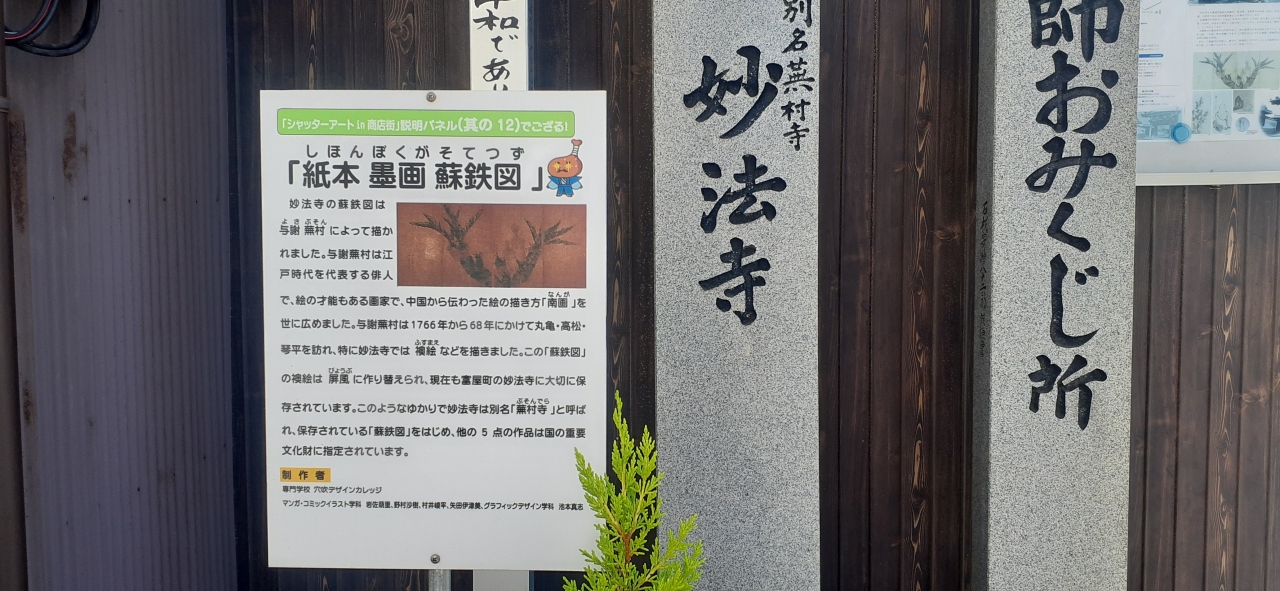 「シャッターアート in 商店街」説明パネル(其の 12)でござる!
しほんぼくがそてつず
「紙本 墨画 蘇鉄図 」
妙法寺の蘇鉄図は
よさ ぶそん
与謝 蕪村 によって描か
れました。与謝蕪村は江
戸時代を代表する俳人
なんが
で、絵の才能もある画家で、中国から伝わった絵の描き方「南画」を
世に広めました。与謝蕪村は1766年から68年にかけて丸亀・高松・
ふすまえ
琴平を訪れ、特に妙法寺では 襖絵 などを描きました。この「蘇鉄図」
びょうぶ
の襖絵は 屏風 に作り替えられ、現在も富屋町の妙法寺に大切に保
ぶそんでら
存されています。このようなゆかりで妙法寺は別名「蕪村寺 」と呼ば
れ、保存されている「蘇鉄図」をはじめ、他の 5 点の作品は国の重要
文化財に指定されています。
制作者
専門学校 穴吹デザインカレッジ
マンガ・コミックイラスト学科 岩佐萌里、野村沙樹、村井崚平、矢田伊津美、グラフィックデザイン学科 池本真志
和であり
別名蕪村寺
妙法寺
師おみくじ所